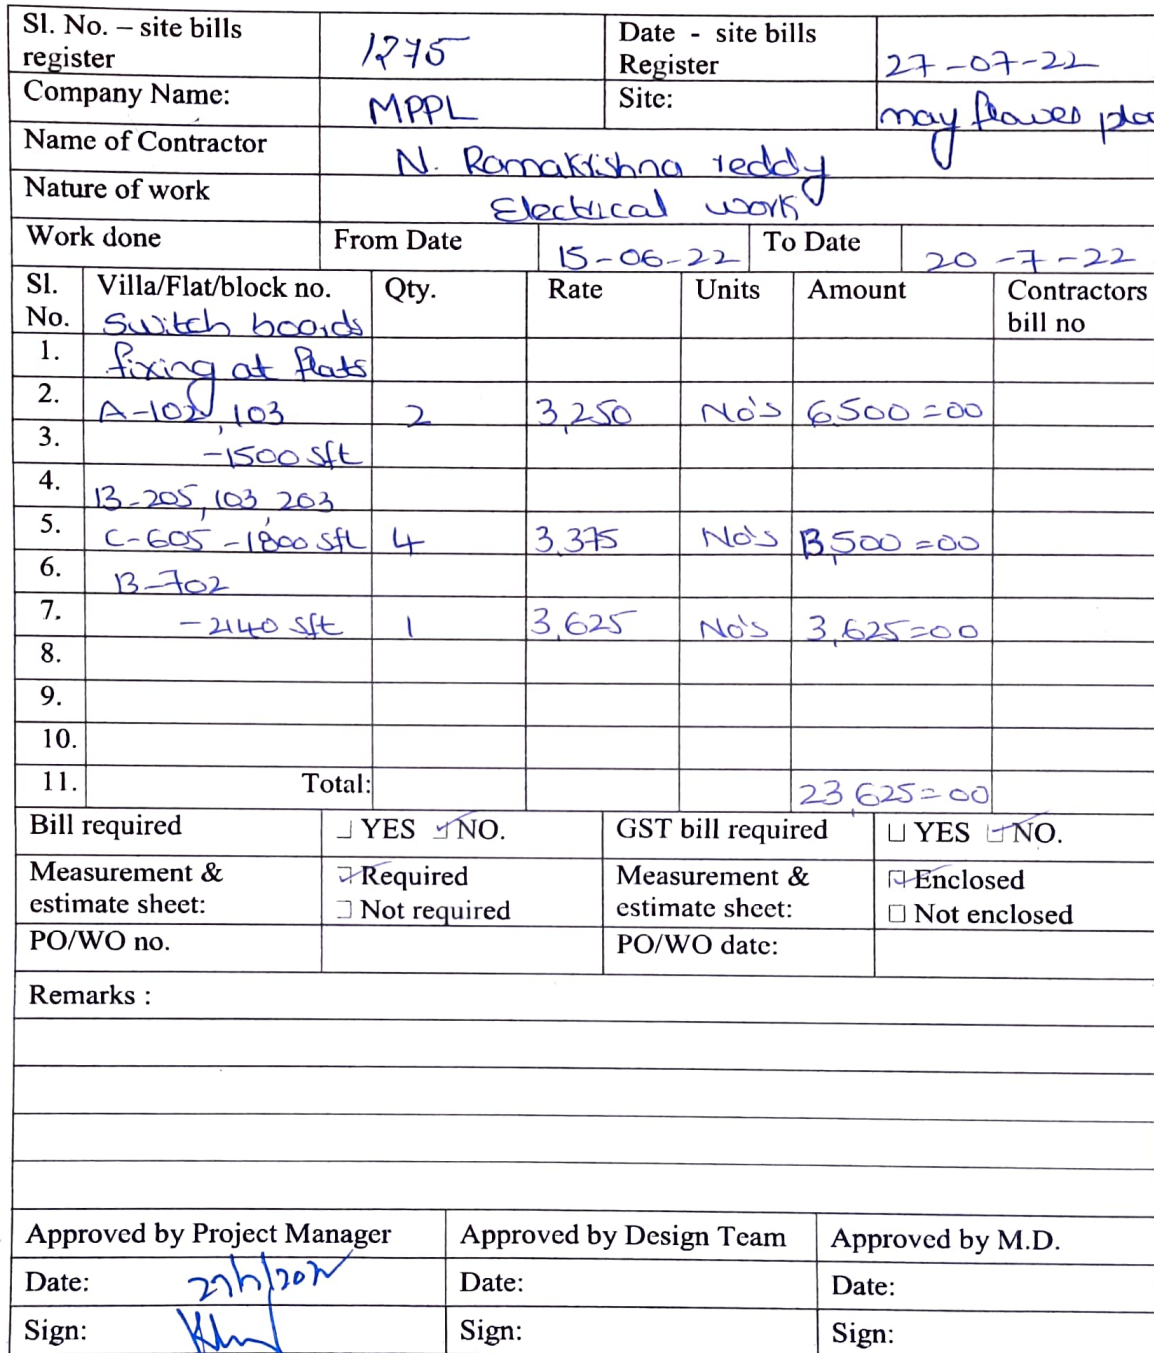 Sl. No. – site bills register 1275 Date - site bills Register 27-07-22
Company Name: MPPL Site: may flower
Name of Contractor N. Ramakrishna reddy
Nature of work Electrical work
Work done From Date 15-06-22 To Date 20-7-22
Sl. No. Villa/Flat/block no. Qty. Rate Units Amount Contractors bill no
Switch boards
1. fixing at flats
2. A-102, 103 2 3,250 No's 6500=00
3. -1500 sft
4. B-205, 103, 203
5. C-605 -1800 sft 4 3,375 No's 13,500=00
6. B-702
7. -2140 sft 1 3,625 No's 3,625=00
8.
9.
10.
11. Total: 23,625=00
Bill required YES NO. GST bill required YES NO.
Measurement & estimate sheet: Required Measurement & estimate sheet: Enclosed
Not required Not enclosed
PO/WO no. PO/WO date:
Remarks :
Approved by Project Manager Approved by Design Team Approved by M.D.
Date: Date: Date:
Sign: Sign: Sign: